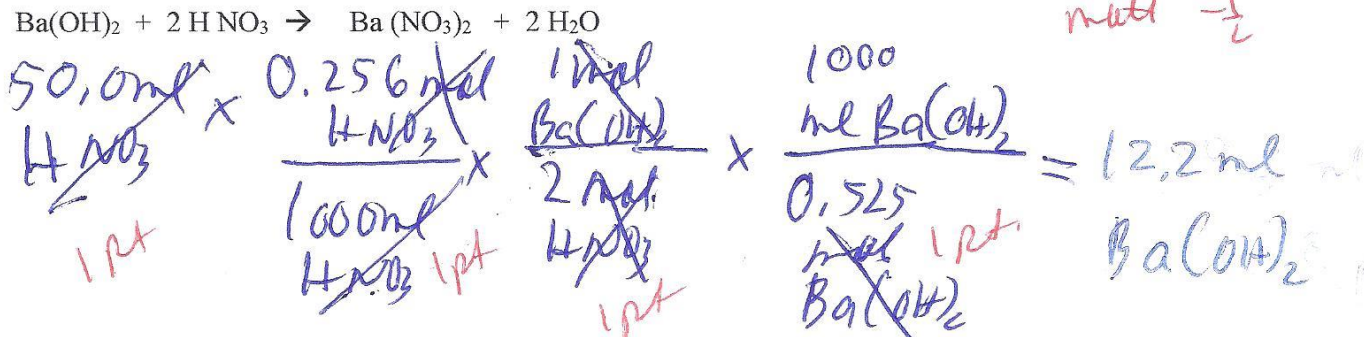 Ba(OH)₂ + 2 H NO₃ → Ba (NO₃)₂ + 2 H₂O
math -½
50,0ml HNO₃ x 0.256 mol HNO₃ / 1000ml HNO₃ x 1 mol Ba(OH)₂ / 2 mol HNO₃ x 1000 ml Ba(OH)₂ / 0.525 mol Ba(OH)₂ = 12,2 ml Ba(OH)₂
1 pt
1 pt
1 pt
1 pt.